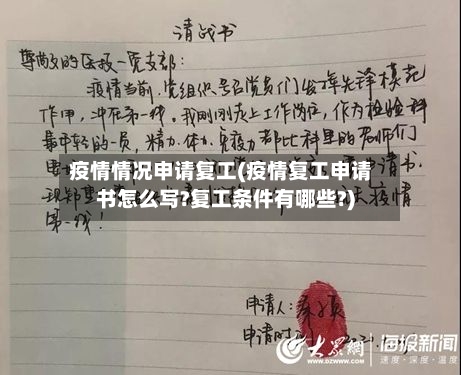 请战书
尊敬的医技一党支部:
疫情当前,党组织号召党员们发挥先锋模范
作用,冲在第一线。我刚刚走上工作岗位,作为检验科
最年轻的一员,精力、体力、免疫力都比科里的老师们
疫情情况申请复工(疫情复工申请
书怎么写?复工条件有哪些?)
请书.
现郑
疫情
第一线!
申请人:
申请时
大众网
海报新闻
速度·深度·温度